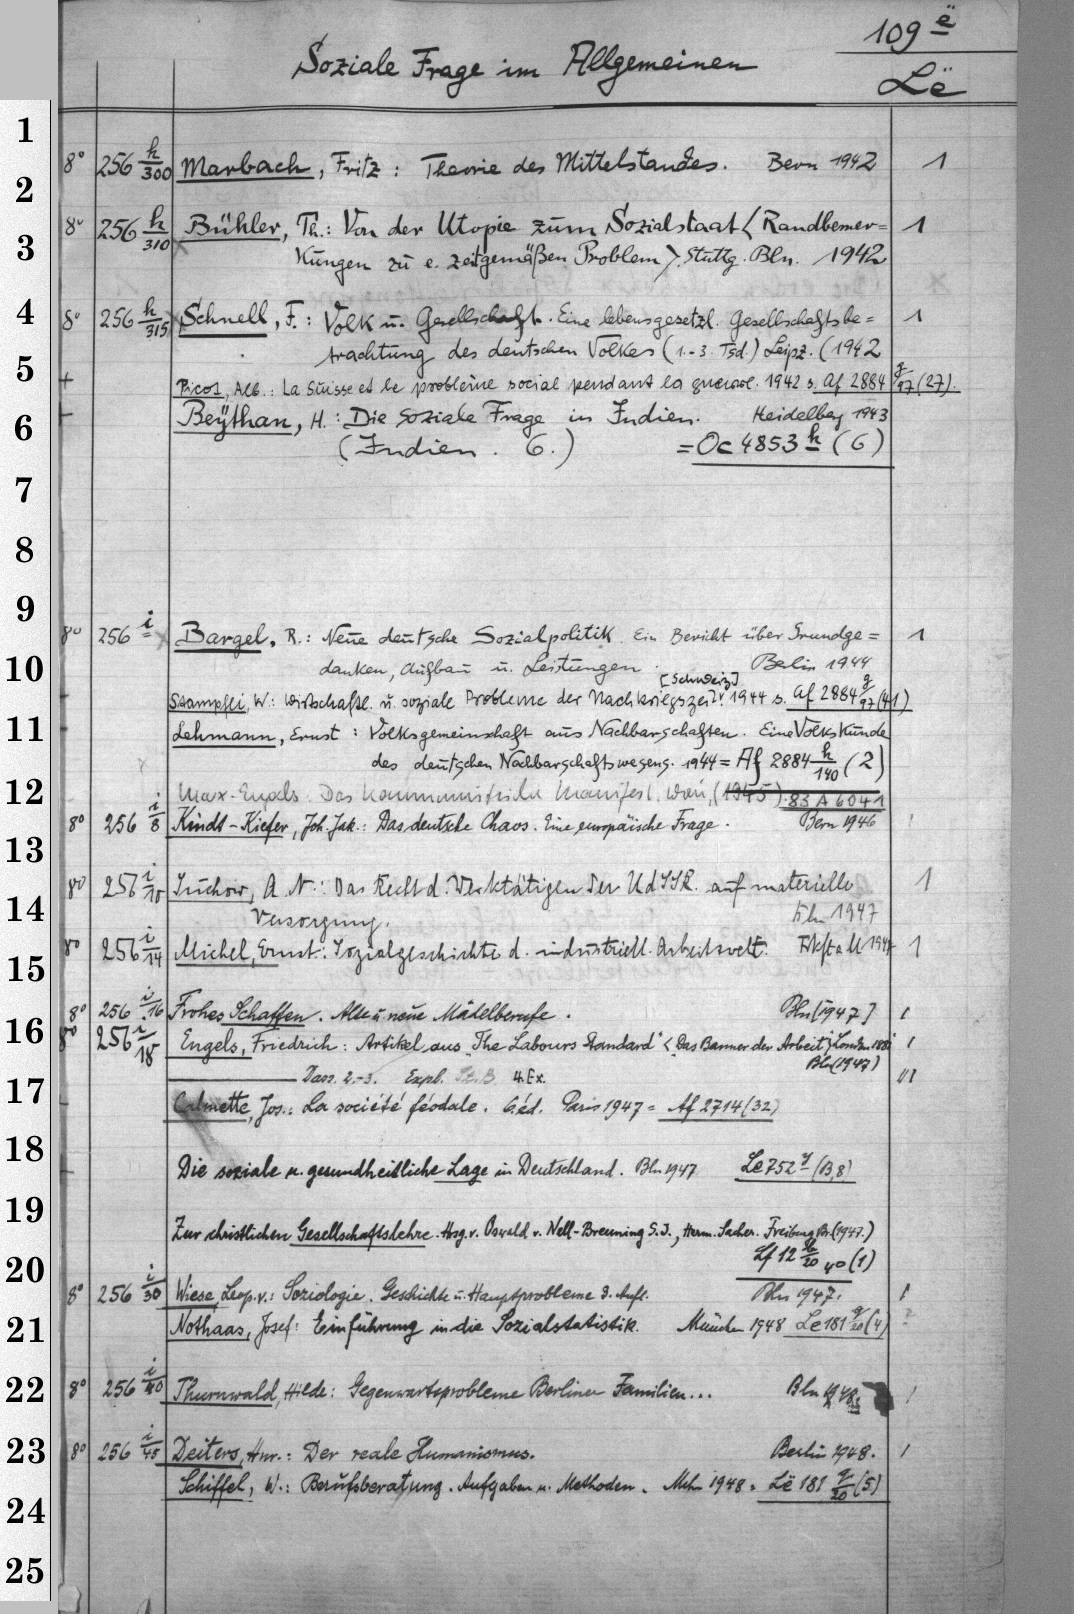 109 ë
Soziale Frage im Allgemeinen
Lë
1
8° 256 h/300 Marbach, Fritz: Theorie des Mittelstandes. Bern 1942 1
2
8° 256 h/310 Bühler, Th.: Von der Utopie zum Sozialstaat < Randbemer= 1
3
kungen zu e. zeitgemäßen Problem >. Stuttg. Bln. 1942
4
8° 256 h/315 Schnell, F.: Volk u. Gesellschaft. Eine lebensgesetzl. Gesellschaftsbe= 1
trachtung des deutschen Volkes (1.-3. Tsd.) Leipz. (1942
5
Picot, Alb.: La Suisse et le problème social pendant la guerre. 1942 s. Af 2884 g/97 (27).
6
Beÿthan, H.: Die soziale Frage in Indien. Heidelberg 1943
(Indien. 6.) = Oc 4853 h (6)
7
8
9
8° 256 i Bargel, R.: Neue deutsche Sozialpolitik. Ein Bericht über Grundge= 1
10
danken, Aufbau u. Leistungen. Berlin 1944
[Schweiz]
Stampfli, W.: Wirtschaftl. u. soziale Probleme der Nachkriegszeit. 1944 s. Af 2884 g/97 (41)
11
Lehmann, Ernst: Volksgemeinschaft aus Nachbarschaften. Eine Volkskunde
des deutschen Nachbarschaftswesens. 1944 = Af 2884 h/140 (2)
12
Marx-Engels: Das kommunistische Manifest. Wien, (1945). 83 A 6041
8° 256 i/8 Kindt-Kiefer, Joh. Jak.: Das deutsche Chaos. Eine europäische Frage. Bern 1946 1
13
8° 256 i/10 Suchow, A. N.: Das Recht d. Werktätigen der UdSSR. auf materielle 1
14
Versorgung. Bln 1947
8° 256 i/14 Michel, Ernst: Sozialgeschichte d. industriell. Arbeitswelt. Frkft a M 1947 1
15
8° 256 i/16 Frohes Schaffen. Alte u. neue Mädelberufe. Bln [1947] 1
16
8° 256 i/18 Engels, Friedrich: Artikel aus "The Labours Standard" < "Das Banner der Arbeit" > London 1881 1
Bln (1947)
Dass. 2.-3. Expl. 4. Ex.
17
Calmette, Jos.: La société féodale. 6. éd. Paris 1947 = Af 2714 (32)
18
Die soziale u. gesundheitliche Lage in Deutschland. Bln 1947 Le 752 y (B,8)
19
Zur christlichen Gesellschaftslehre. Hrsg. v. Oswald v. Nell-Breuning S.J., Herm. Sacher. Freiburg Br. (1947.)
20
8° 256 i/30 Wiese, Leop. v.: Soziologie. Geschichte u. Hauptprobleme 3. Aufl. Bln 1947. 1
21
Nothaas, Josef: Einführung in die Sozialstatistik. München 1948 Le 181 g/20 (4)
22
8° 256 i/40 Thurnwald, Hilde: Gegenwartsprobleme Berliner Familien... Bln 1948. 1
23
8° 256 i/45 Deiters, Hnr.: Der reale Humanismus. Berlin 1948. 1
Schiffel, W.: Berufsberatung. Aufgaben u. Methoden. Mchn 1948 = Lë 181 g/20 (5)
24
25